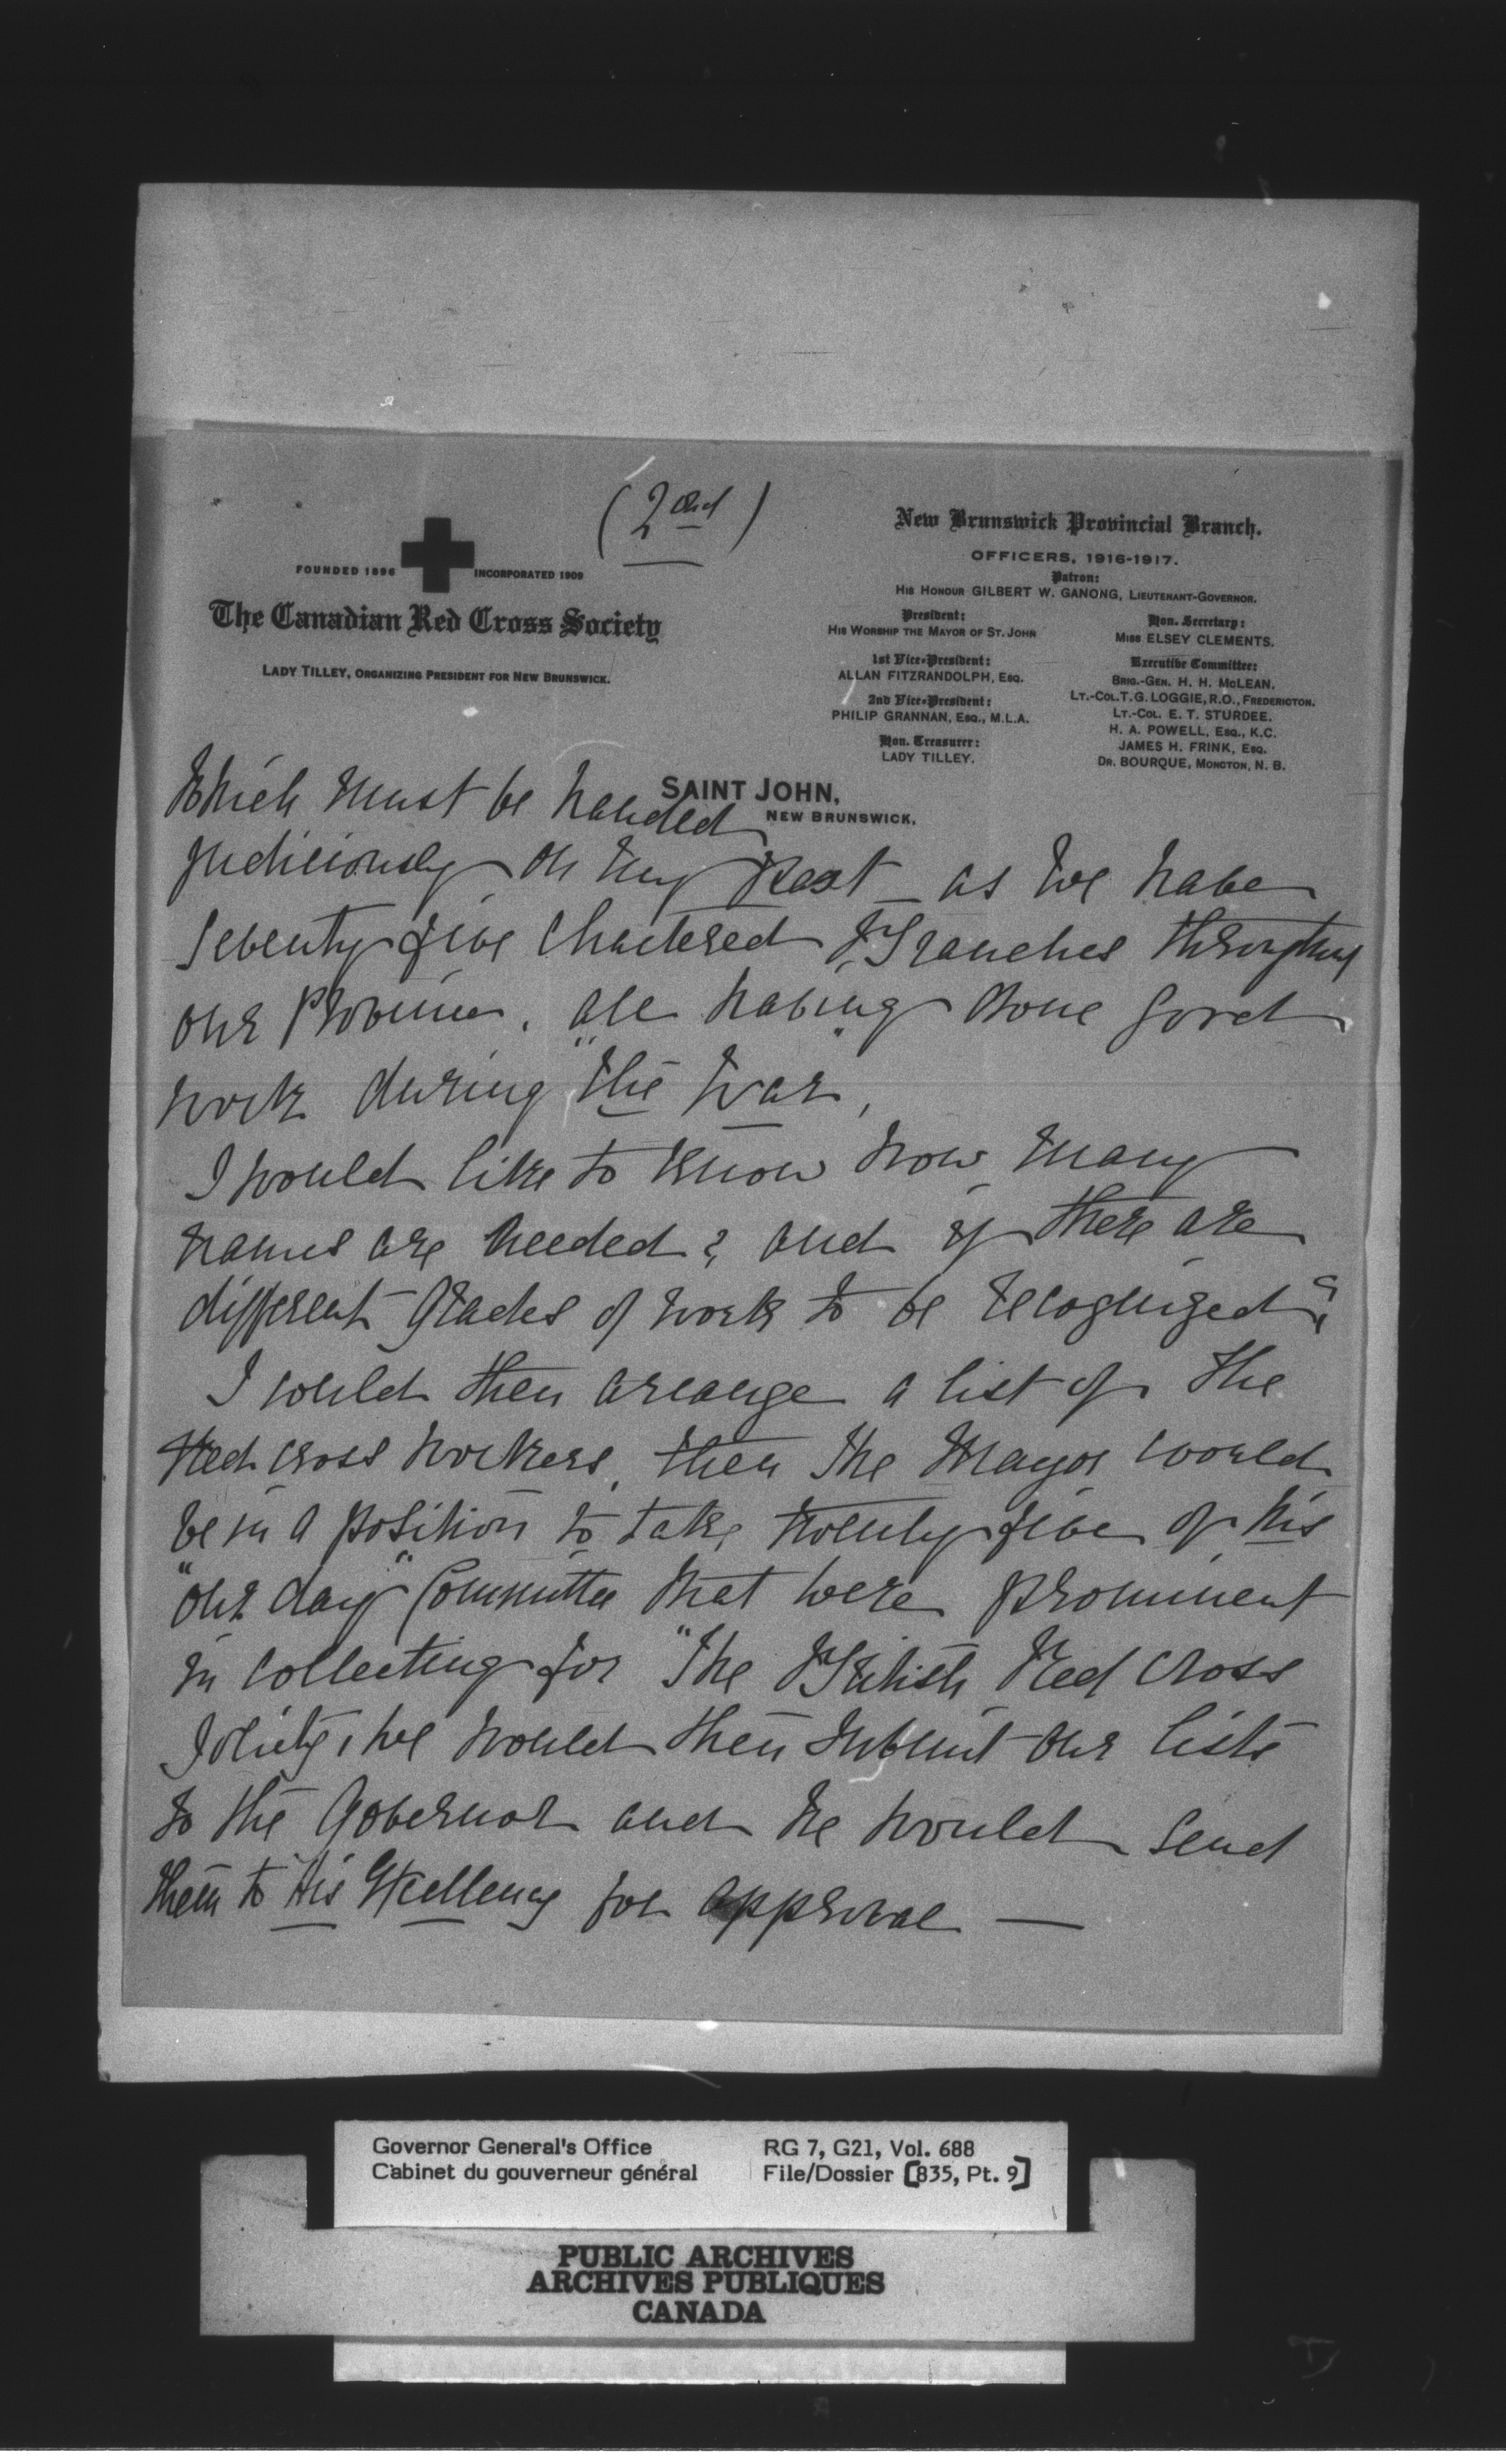 (2nd)
FOUNDED 1896
INCORPORATED 1909
The Canadian Red Cross Society
LADY TILLEY, ORGANIZING PRESIDENT FOR NEW BRUNSWICK.
New Brunswick Provincial Branch.
OFFICERS, 1916-1917.
Patron:
HIS HONOUR GILBERT W. GANONG, LIEUTENANT-GOVERNOR.
President:
HIS WORSHIP THE MAYOR OF ST. JOHN
1st Vice-President:
ALLAN FITZRANDOLPH, ESQ.
2nd Vice-President:
PHILIP GRANNAN, ESQ., M.L.A.
Hon. Treasurer:
LADY TILLEY.
Hon. Secretary:
MISS ELSEY CLEMENTS.
Executive Committee:
BRIG.-GEN. H. H. McLEAN.
LT.-COL. T. G. LOGGIE, R.O., FREDERICTON.
LT.-COL. E. T. STURDEE.
H. A. POWELL, ESQ., K.C.
JAMES H. FRINK, ESQ.
DR. BOURQUE, MONCTON, N. B.
SAINT JOHN,
NEW BRUNSWICK.
which must be handed
judiciously on my part – as we have
seventy five chartered Branches throughout
our Province. all having done good
work during "the war",
I would like to know how many
names are needed? and if there are
different grades of work to be recognized?
I could then arrange a list of the
Red Cross workers, then the Mayor could
be in a position to take twenty five of his
"our day" Committee that were prominent
in collecting for "The British Red Cross
Society, we would then submit our lists
to the Governor and he would send
them to His Excellency for approval —
Governor General's Office
Cabinet du gouverneur général
RG 7, G21, Vol. 688
File/Dossier [835, Pt. 9]
PUBLIC ARCHIVES
ARCHIVES PUBLIQUES
CANADA